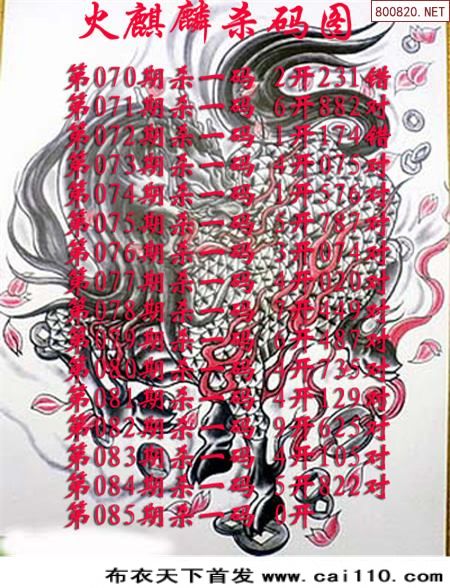 800820.NET
火麒麟杀码图
第070期杀一码 2开231错
第071期杀一码 6开882对
第072期杀一码 1开174错
第073期杀一码 4开075对
第074期杀一码 1开576对
第075期杀一码 开787对
第076期杀一码 3开074对
第077期杀一码 4开020对
第078期杀一码 开449对
第079期杀一码 6开487对
第080期杀一码 开735对
第081期杀一码 4开129对
第082期杀一码 9开625对
第083期杀一码 4开103对
第084期杀一码 5开822对
第085期杀一码 0开
布衣天下首发 www.cai110.com